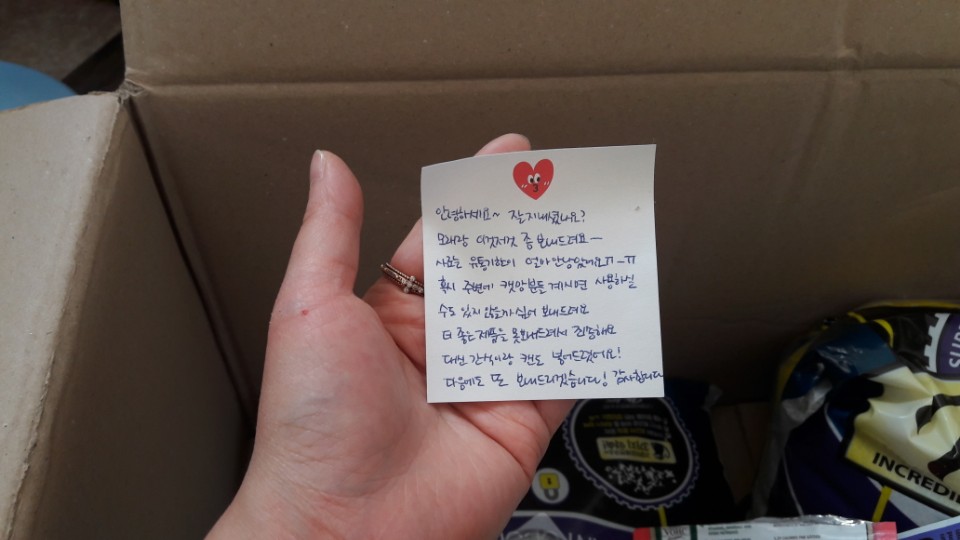 안녕하세요~ 잘지내셨나요?
모래랑 이것저것 좀 보내드려요ㅡ
사료는 유통기한이 얼마 안남았어요ㅠㅡㅠ
혹시 주변에 캣맘분들 계시면 사용하실
수도 있지 않을까 싶어 보내드려요
더 좋은 제품을 못보내드려서 죄송해요
대신 간식이랑 캔도 넣어드렸어요!
다음에도 또 보내드리겠습니다! 감사합니다
INCREDI